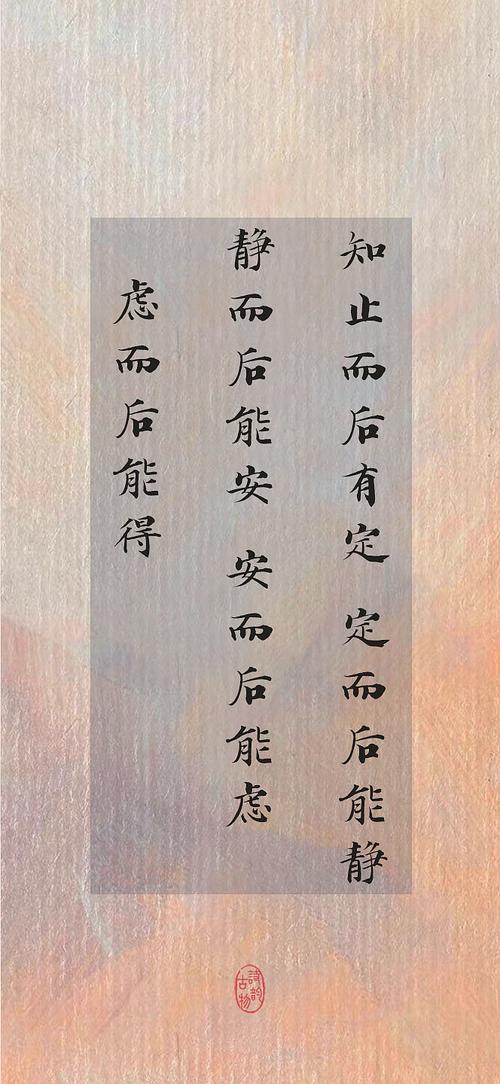 知止而后有定 定而后能静
静而后能安 安而后能虑
虑而后能得
詩韵
古物